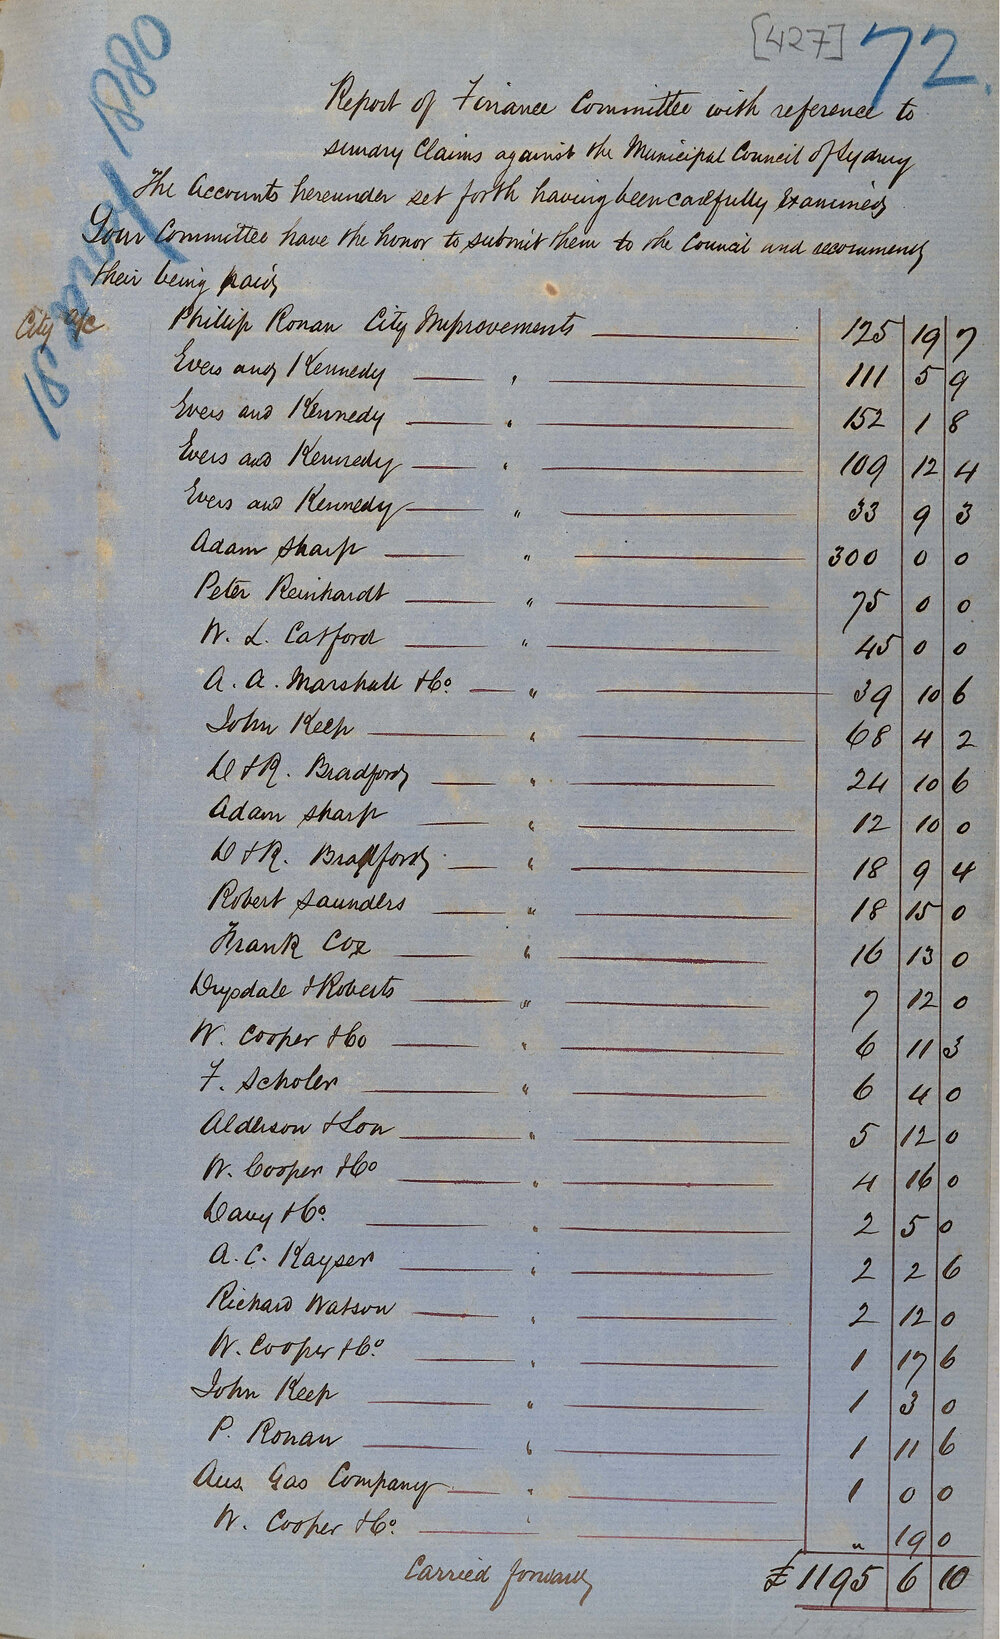 [427] 72.
18 March 1880
Report of Finance Committee with reference to
sundry Claims against the Municipal Council of Sydney
The Accounts hereunder set forth having been carefully Examined
Your Committee have the honor to submit them to the Council and recommend
their being paid
City a/c Phillip Ronan City Improvements 125 19 7
Evers and Kennedy " 111 5 9
Evers and Kennedy " 152 1 8
Evers and Kennedy " 109 12 4
Evers and Kennedy " 33 9 3
Adam Sharp " 300 0 0
Peter Reinhardt " 75 0 0
W. L. Catford " 45 0 0
A. A. Marshall & Co. " 39 10 6
John Keep " 68 4 2
D & R. Bradford " 24 10 6
Adam Sharp " 12 10 0
D & R. Bradford " 18 9 4
Robert Saunders " 18 15 0
Frank Cox " 16 13 0
Drysdale & Roberts " 7 12 0
W. Cooper & Co " 6 11 3
F. Scholer " 6 4 0
Alderson & Son " 5 12 0
W. Cooper & Co " 4 16 0
Davy & Co. " 2 5 0
A. C. Kayser " 2 2 6
Richard Watson " 2 12 0
W. Cooper & Co. " 1 17 6
John Keep " 1 3 0
P. Ronan " 1 11 6
Aus. Gas Company " 1 0 0
W. Cooper & Co. " " 19 0
Carried forward £1195 6 10